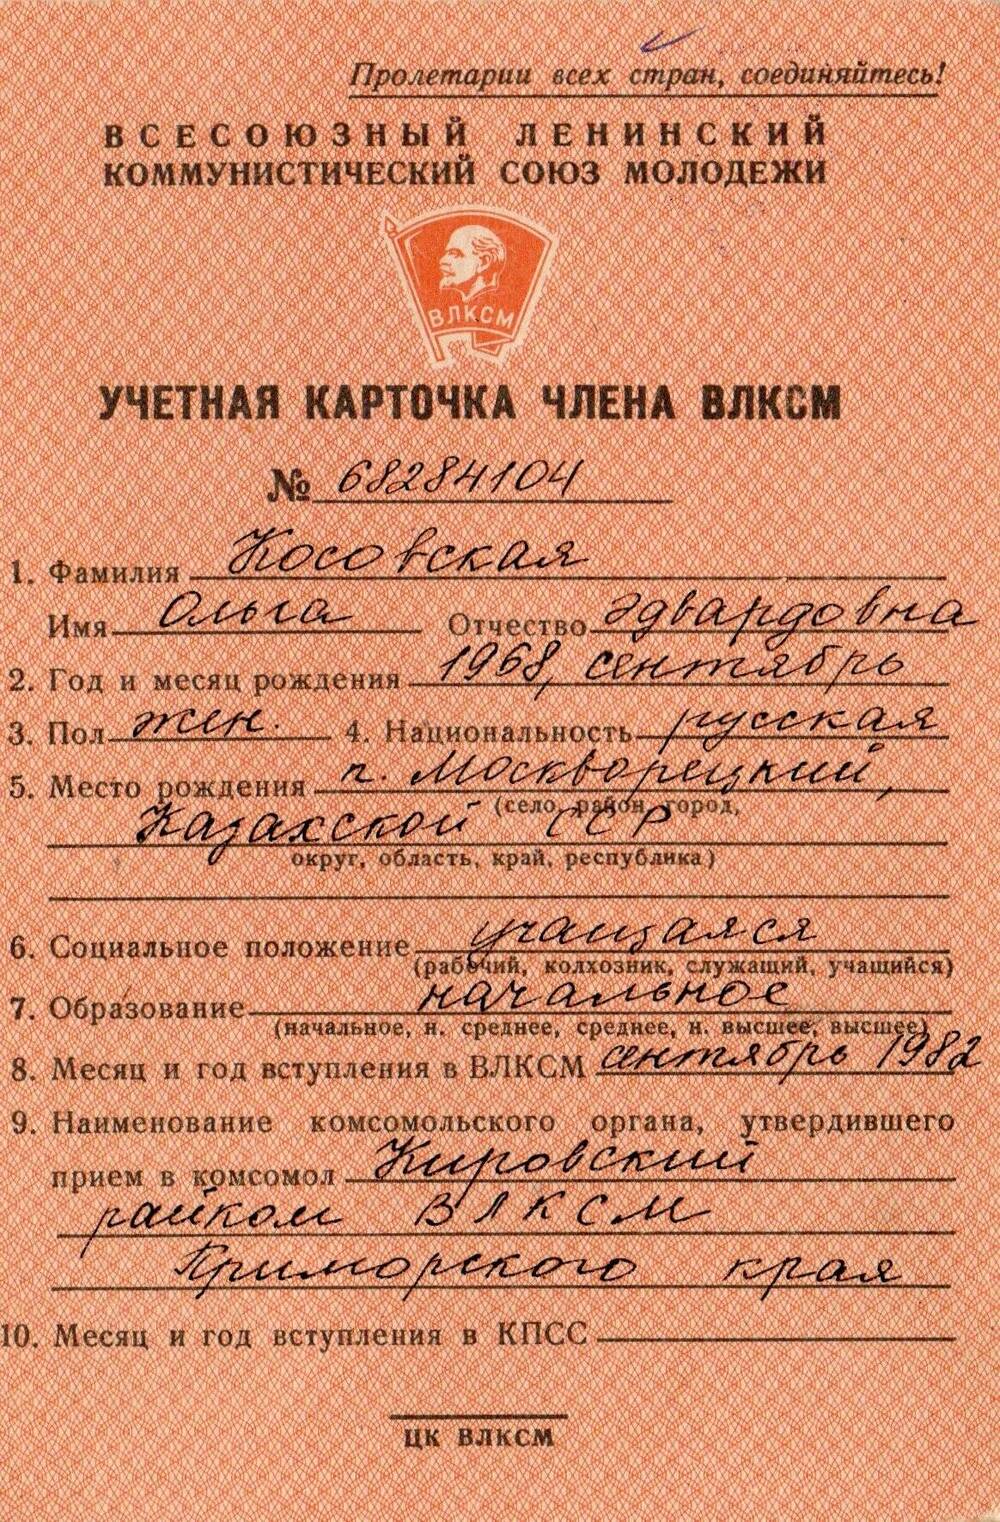 Пролетарии всех стран, соединяйтесь!
ВСЕСОЮЗНЫЙ ЛЕНИНСКИЙ
КОММУНИСТИЧЕСКИЙ СОЮЗ МОЛОДЕЖИ
ВЛКСМ
УЧЕТНАЯ КАРТОЧКА ЧЛЕНА ВЛКСМ
№ 68284104
1. Фамилия Косовская
Имя Ольга Отчество Эдвардовна
2. Год и месяц рождения 1968, сентябрь
3. Пол жен. 4. Национальность русская
5. Место рождения п. Москворецкий,
(село, район, город,
Казахской ССР
округ, область, край, республика)
6. Социальное положение учащаяся
(рабочий, колхозник, служащий, учащийся)
7. Образование начальное
(начальное, н. среднее, среднее, н. высшее, высшее)
8. Месяц и год вступления в ВЛКСМ сентябрь 1982
9. Наименование комсомольского органа, утвердившего
прием в комсомол Кировский
райком ВЛКСМ
Приморского края
10. Месяц и год вступления в КПСС
ЦК ВЛКСМ